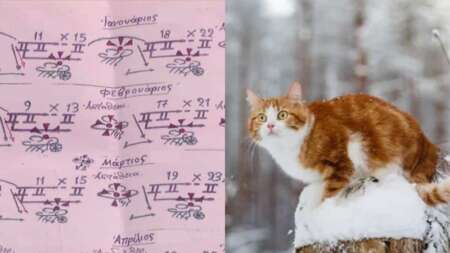 Ιανουάριος
11 x 15 18 x 22
Φεβρουάριος
9 x 13 Αστάθεια 17 x 21
Μάρτιος
11 x 15 Αστάθεια 19 x 23
Απρίλιος